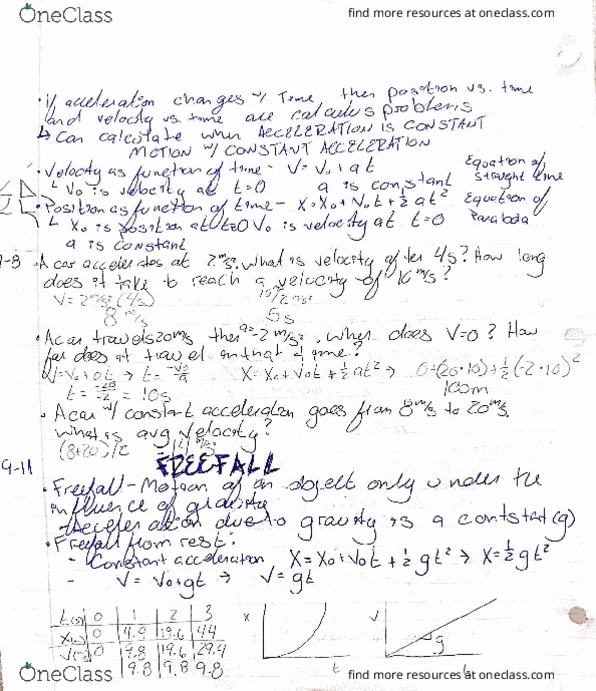 OneClass
find more resources at oneclass.com
• if acceleration changes w/ Time, then position vs. time
and velocity vs. time are calculus problems
↳ Can calculate when ACCELERATION IS CONSTANT
MOTION w/ CONSTANT ACCELERATION
• Velocity as function of time - V = V₀ + at Equation of
↳ V₀ is velocity at t=0 a is constant straight line
• Position as function of time - X = X₀ + V₀t + ½ at² Equation of
↳ X₀ is position at t=0 V₀ is velocity at t=0 Parabola
a is constant
• A car accelerates at 2 m/s². What is velocity after 4s? How long
does it take to reach a velocity of 10 m/s?
V = 2 m/s² (4s) 10/2 m/s²
8 m/s 5s
• A car travels 20 m/s then a = -2 m/s². When does V=0? How
far does it travel in that time?
V = V₀ + at → t = -V₀/a X = X₀ + V₀t + ½ at² → 0 + (20·10) + ½(-2·10)²
t = -20/-2 = 10s 100m
• A car w/ constant acceleration goes from 8 m/s to 20 m/s.
What is avg velocity?
(8+20)/2
9-11 FREEFALL
• Freefall - Motion of an object only under the
influence of gravity
acceleration due to gravity is a contstant (g)
• Freefall from rest:
- Constant acceleration X = X₀ + V₀t + ½ gt² → X = ½ gt²
- V = V₀ + gt → V = gt
t(s) 0 1 2 3 x v
x(m) 0 4.9 19.6 44
0 9.8 19.6 29.4 g
9.8 9.8 9.8 t
OneClass
find more resources at oneclass.com